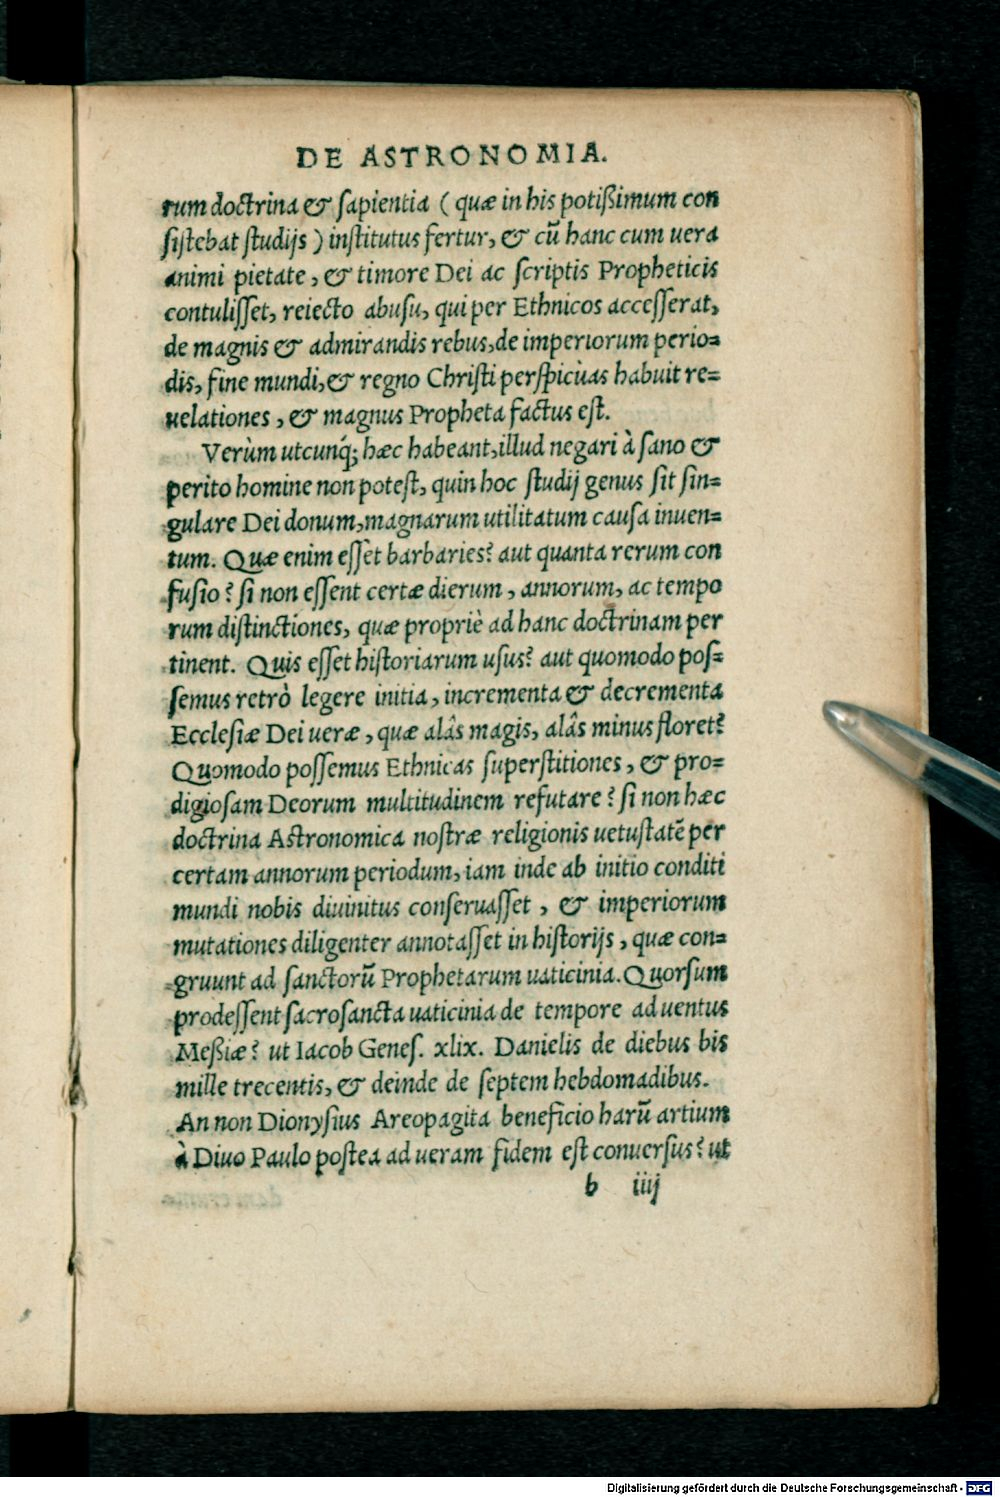 DE ASTRONOMIA.
rum doctrina & sapientia ( quæ in his potißimum con
sistebat studijs ) institutus fertur, & cũ hanc cum uera
animi pietate, & timore Dei ac scriptis Propheticis
contulisset, reiecto abusu, qui per Ethnicos accesserat,
de magnis & admirandis rebus, de imperiorum perio=
dis, fine mundi, & regno Christi perspicùas habuit re=
uelationes, & magnus Propheta factus est.
Verùm utcunq́; hæc habeant, illud negari à sano &
perito homine non potest, quin hoc studij genus sit sin=
gulare Dei donum, magnarum utilitatum causa inuen=
tum. Quæ enim esset barbaries? aut quanta rerum con
fusio? si non essent certæ dierum, annorum, ac tempo
rum distinctiones, quæ propriè ad hanc doctrinam per
tinent. Quis esset historiarum usus? aut quomodo pos=
semus retrò legere initia, incrementa & decrementa
Ecclesiæ Dei ueræ, quæ aliâs magis, aliâs minus floret?
Quomodo possemus Ethnicas superstitiones, & pro=
digiosam Deorum multitudinem refutare? si non hæc
doctrina Astronomica nostræ religionis uetustatẽ per
certam annorum periodum, iam inde ab initio conditi
mundi nobis diuinitus conseruasset, & imperiorum
mutationes diligenter annotasset in historijs, quæ con=
gruunt ad sanctorũ Prophetarum uaticinia. Quorsum
prodessent sacrosancta uaticinia de tempore aduentus
Meßiæ? ut Iacob Genes. xlix. Danielis de diebus bis
mille trecentis, & deinde de septem hebdomadibus.
An non Dionysius Areopagita beneficio harũ artium
à Diuo Paulo postea ad ueram fidem est conuersus? ut
b iiij
Digitalisierung gefördert durch die Deutsche Forschungsgemeinschaft - DFG